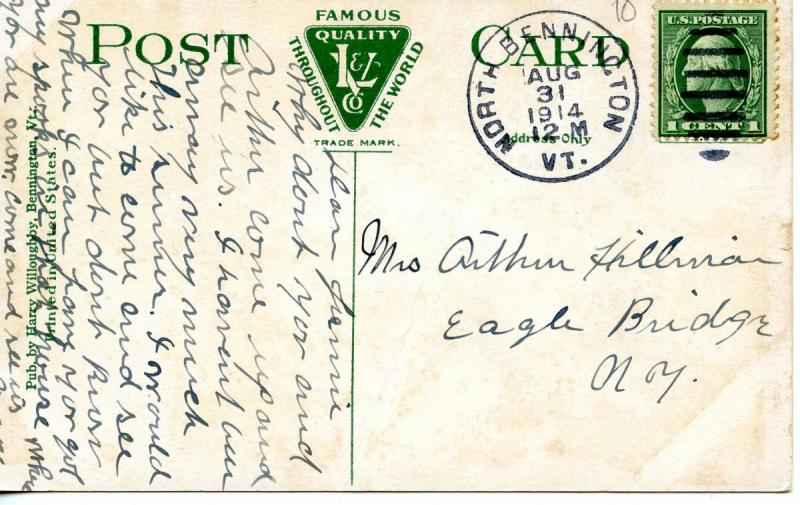 POST CARD
FAMOUS
QUALITY
THROUGHOUT
THE WORLD
L & L
CO
TRADE MARK.
Address Only
NORTH BENNINGTON
AUG
31
1914
12 M
VT.
10
U.S. POSTAGE
1 CENT 1
Mrs Arthur Hillman
Eagle Bridge
N.Y.
Dear
Why dont you and
Arthur come up and
see us. I havent been
away very much
This summer. I would
like to come and see
you but dont know
When I can. Have you got
my spook
you are over, come and see us
Pub. by Harry Willoughby, Bennington, Vt.
Printed in United States.